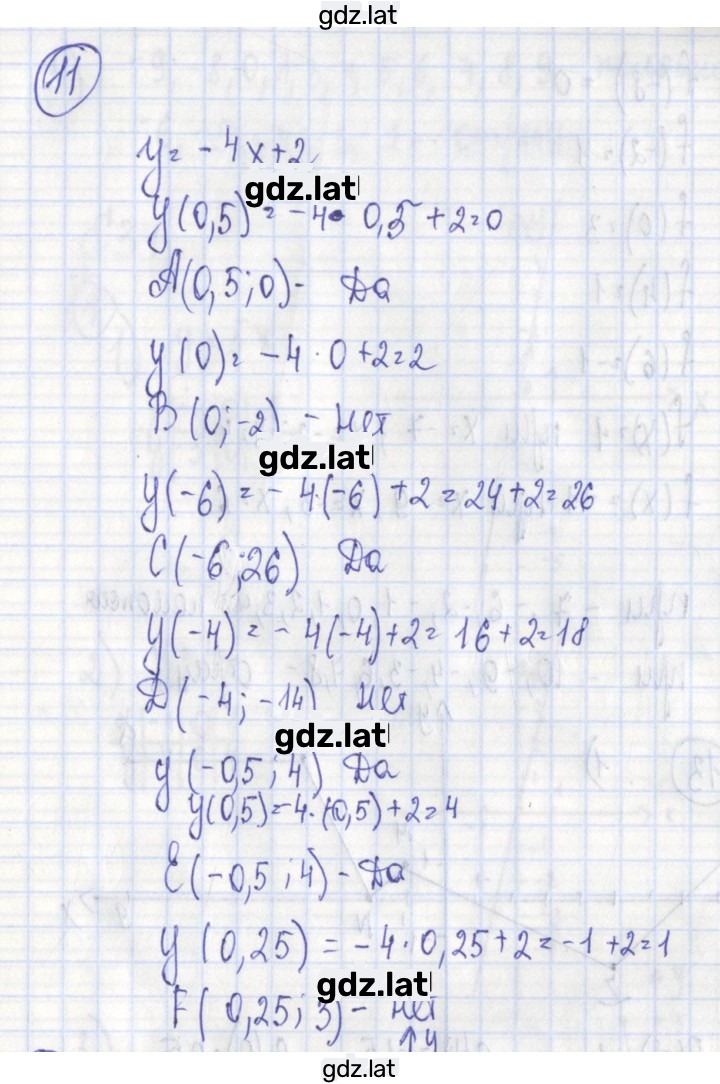 gdz.lat
11
y = -4x+2
gdz.lat
y(0,5) = -4 · 0,5 + 2=0
A(0,5;0)- Да
y(0)= -4 · 0+2=2
B(0;-2) - Нет
gdz.lat
y(-6) = - 4·(-6) +2 = 24+2=26
C(-6;26) Да
y(-4) = - 4(-4)+2= 16+2=18
D(-4; -14) Нет
gdz.lat
y(-0,5;4) Да
y(0,5)=-4·(-0,5)+2=4
E(-0,5;4)- Да
y (0,25) = -4·0,25+2=-1+2=1
gdz.lat
F( 0,25; 3)- нет
gdz.lat